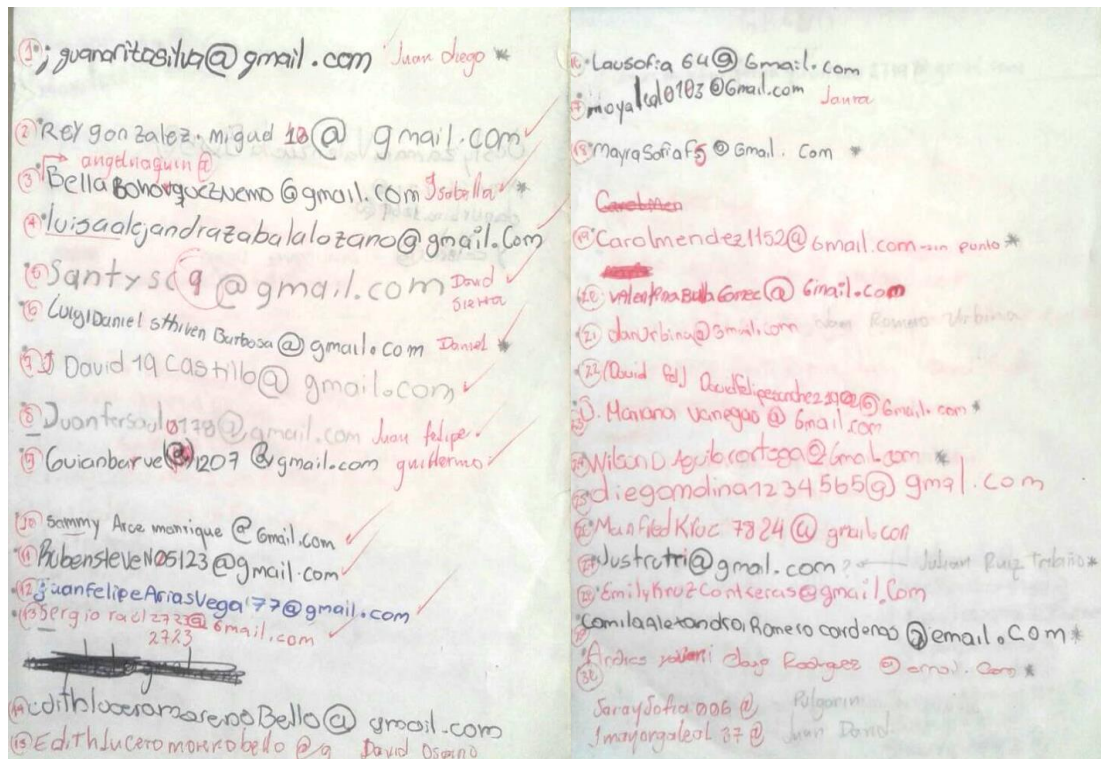 1 ; guanaritasilva@gmail.com Juan diego *
2 Reygonzalez.miguel18@gmail.com
angelnaquin@
3 BellaBohorquezNemo@gmail.com Isabella *
4 luisaalejandrazabalalozano@gmail.Com
5 Santysc9@gmail.com David
Sierra
6 LuigiDaniel sthiven Barbosa@gmail.com Daniel *
7 David 19 Castillo@gmail.com
8 Juanfersaul0178@gmail.com Juan felipe.
9 Guianbarve 1207 @gmail.com guillermo
10 Sammy Arce manrique @Gmail.com
11 RubensteveN05123@gmail.com
12 juanfelipeAriasVega'77@gmail.com
13 Sergio raul2723@Gmail.com
2723
14 EdithluceromorenoBello@gmail.com
15 Edithlucero morenobello @g David Osorio
16 Lausofia 64@Gmail.com
17 moyaleal0103@Gmail.com Laura
18 MayraSofiaf5@Gmail.Com *
19 Carolmendez1152@Gmail.com-sin punto *
20 ValentinaBullaGomez@Gmail.Com
21 danurbina@gmail.com Romero Urbina
22 (David fel) @Gmail.com *
23 Mariana vanegas@Gmail.com
24 Wilson D Aguilarortega@Gmail.com *
25 diegomolina1234565@gmal.com
26 Manfred Kruc 7824@gmail.con
27 Justrotri@gmal.com? Julian Ruiz Trebiño *
28 EmilyKruzContreras@gmail.Com
29 CamilaAlexandra Romero cardenas@email.com *
30 Andres Rodriguez @gmail.Com *
SaraySofia 006 @ Pulgarin
Jmayorgaleal 37 @ Juan David